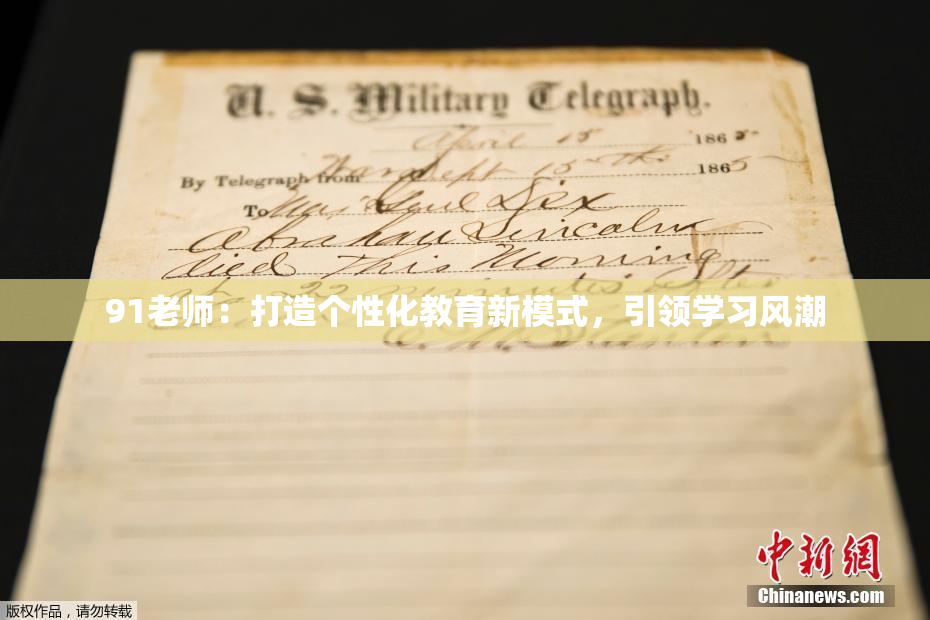 U. S. Military Telegraph.
April 15 1865
By Telegraph from War Dept 15th 1865
To Maj Genl Dix
Abraham Lincoln
died This Morning
at 22 minutes after
91老师：打造个性化教育新模式，引领学习风潮
E. M. Stanton
中新网
Chinanews.com
版权作品，请勿转载